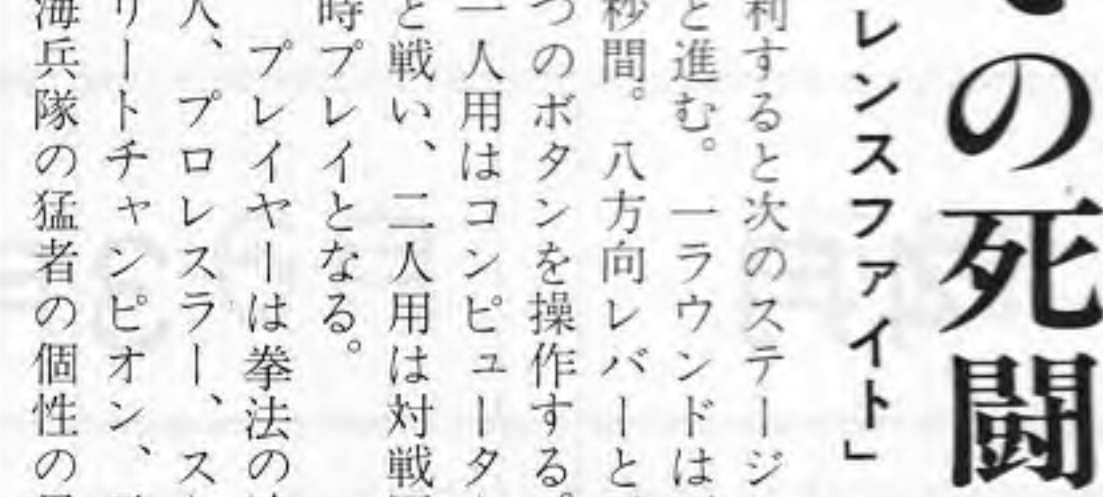 の死闘
レンスファイト」
利すると次のステージ
と進む。一ラウンドは
秒間。八方向レバーと
つのボタンを操作する。
一人用はコンピュータ
と戦い、二人用は対戦
時プレイとなる。
プレイヤーは拳法の
人、プロレスラー、ス
リートチャンピオン、
海兵隊の猛者の個性の